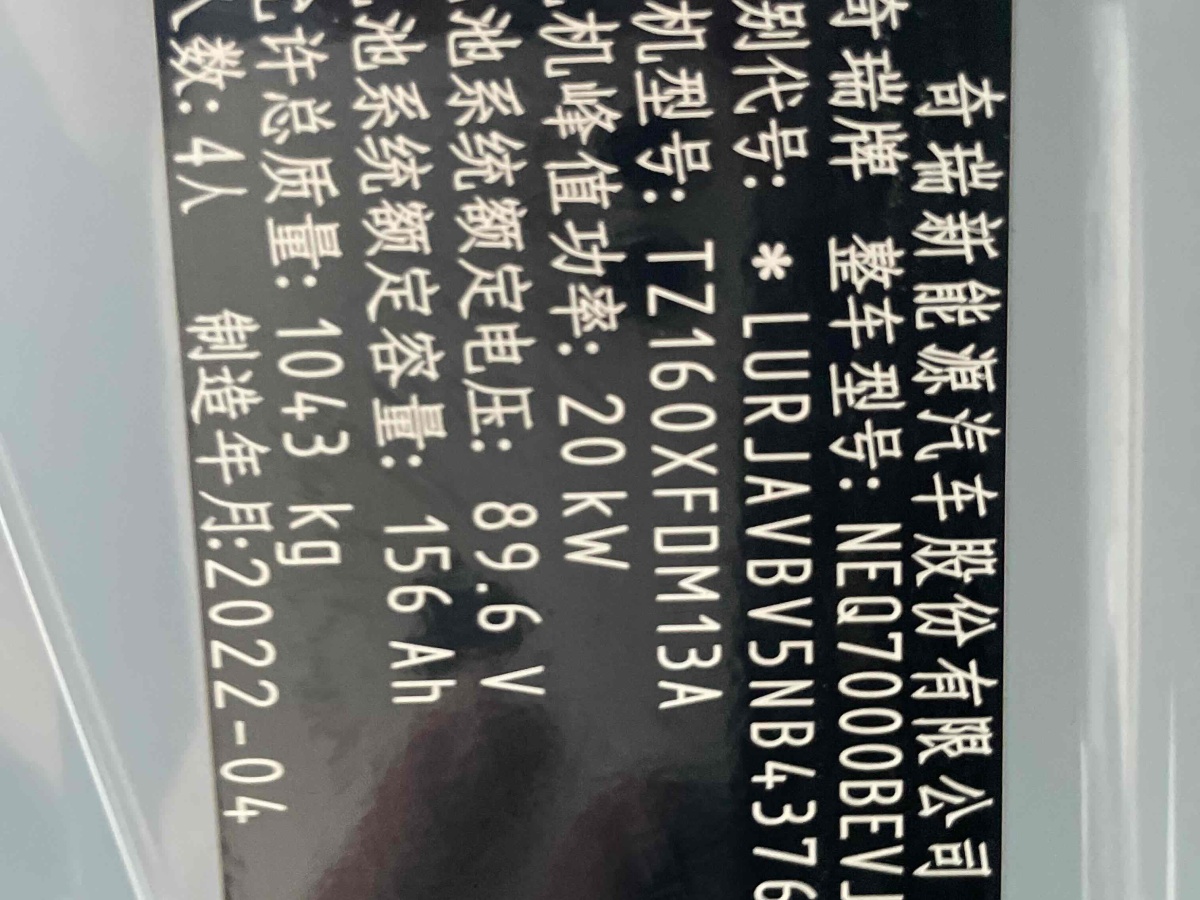 奇瑞新能源汽车股份有限公司
奇瑞牌 整车型号:NEQ7000BEVJ
别代号: *LURJAVBV5NB4376
机型号: TZ160XFDM13A
机峰值功率: 20kW
池系统额定电压: 89.6 V
池系统额定容量: 156 Ah
许总质量: 1043 kg
人数: 4人 制造年月:2022-04